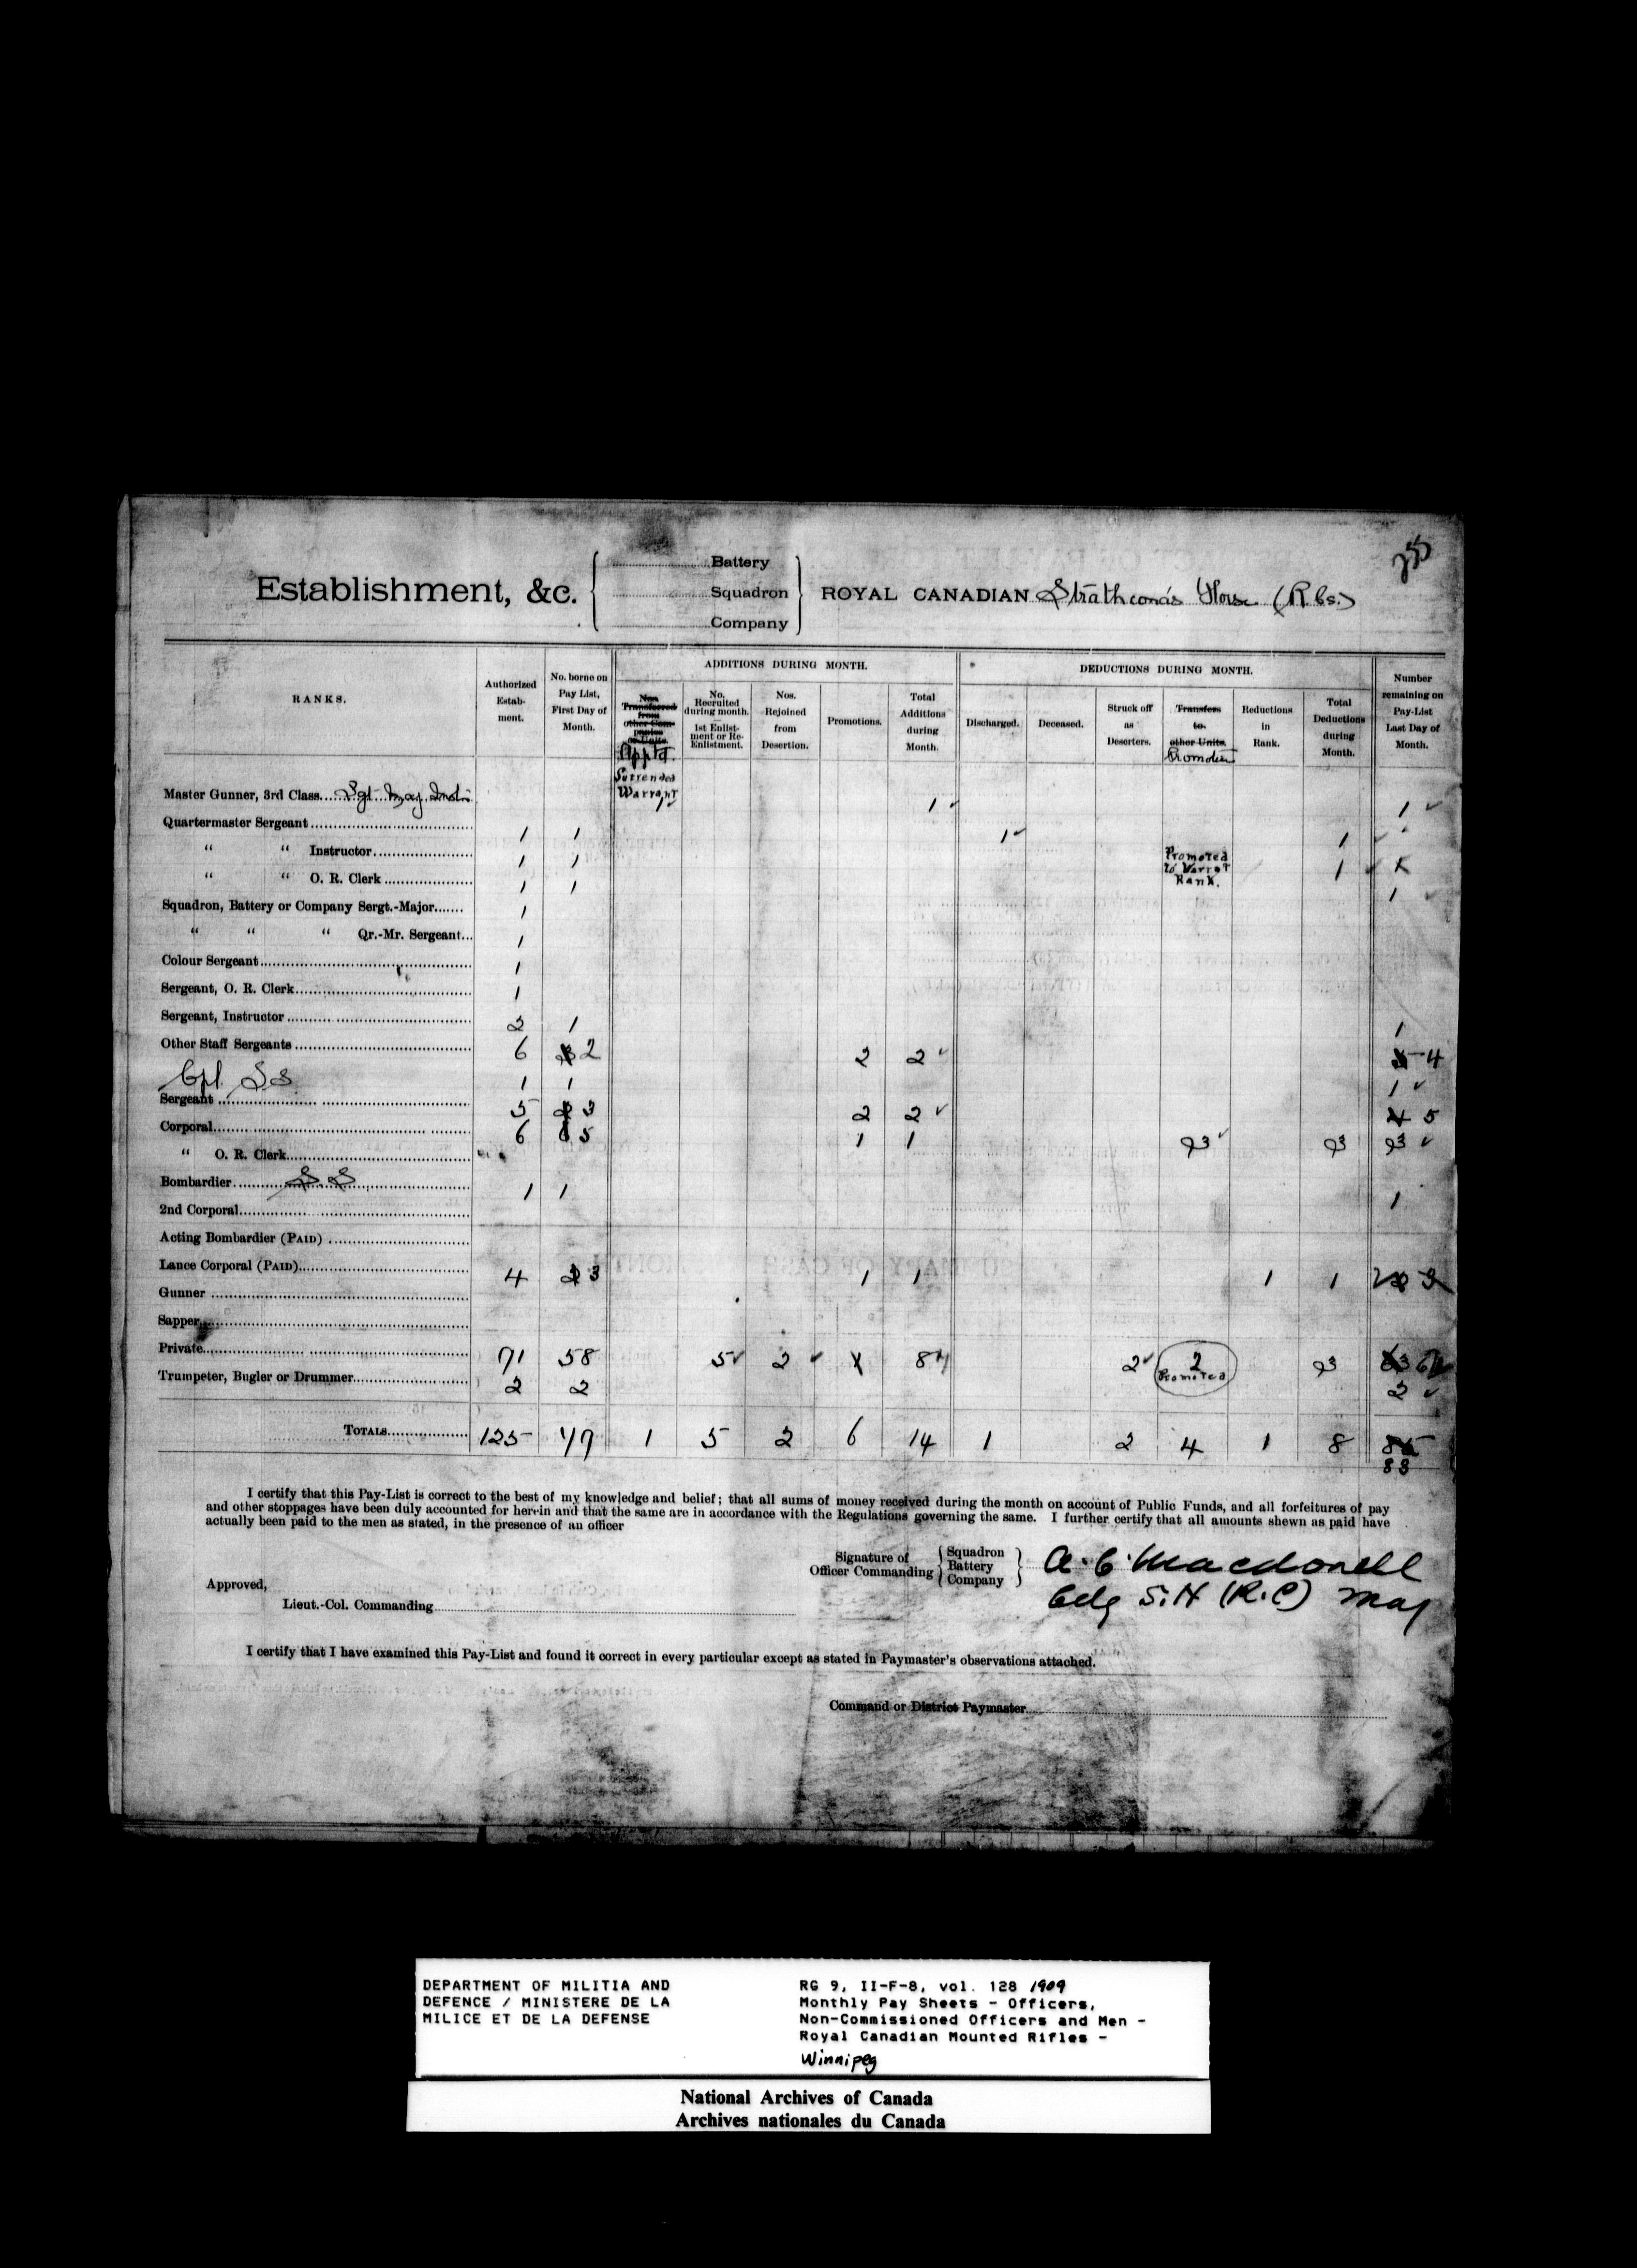 255
Establishment, &c. { Battery Squadron Company } ROYAL CANADIAN Strathcona's Horse (R Cs.)
RANKS.
Authorized Estab-ment.
No. borne on Pay List, First Day of Month.
ADDITIONS DURING MONTH.
Nos. Transferred from other Companies or Units.
Appt'd.
No. Recruited during month. — 1st Enlist-ment or Re-Enlistment.
Nos. Rejoined from Desertion.
Promotions.
Total Additions during Month.
DEDUCTIONS DURING MONTH.
Discharged.
Deceased.
Struck off as Deserters.
Transfers to other Units.
Promotion
Reductions in Rank.
Total Deductions during Month.
Number remaining on Pay-List Last Day of Month.
Master Gunner, 3rd Class.... Sgt. Maj. Instr. Warrant 1 1 1
Quartermaster Sergeant 1 1 1 1
" " Instructor 1 1 Promoted to Warrant Rank. 1
" " O. R. Clerk 1 1 1
Squadron, Battery or Company Sergt.-Major 1
" " " Qr.-Mr. Sergeant... 1
Colour Sergeant 1
Sergeant, O. R. Clerk 1
Sergeant, Instructor 2 1 1
Other Staff Sergeants 6 2 2 2 4
Cpl. S.S. 1 1 1
Sergeant 5 3 2 2 4 5
Corporal 6 5 1 1 3 3 3
" O. R. Clerk
Bombardier S.S 1 1 1
2nd Corporal
Acting Bombardier (PAID)
Lance Corporal (PAID) 4 3 1 1 1 1 3
Gunner
Sapper
Private 71 58 5 2 8 2 2 Promoted 3
Trumpeter, Bugler or Drummer 2 2 2
TOTALS 125 77 1 5 2 6 14 1 2 4 1 8 85
83
I certify that this Pay-List is correct to the best of my knowledge and belief; that all sums of money received during the month on account of Public Funds, and all forfeitures of pay
and other stoppages have been duly accounted for herein and that the same are in accordance with the Regulations governing the same. I further certify that all amounts shewn as paid have
actually been paid to the men as stated, in the presence of an officer
Signature of Officer Commanding { Squadron Battery Company } A. C. Macdonell
Cdg S.H (R.C) Maj
Approved,
Lieut.-Col. Commanding
I certify that I have examined this Pay-List and found it correct in every particular except as stated in Paymaster's observations attached.
Command or District Paymaster
DEPARTMENT OF MILITIA AND
DEFENCE / MINISTERE DE LA
MILICE ET DE LA DEFENSE
RG 9, II-F-8, vol. 128 1909
Monthly Pay Sheets - Officers,
Non-Commissioned Officers and Men -
Royal Canadian Mounted Rifles -
Winnipeg
National Archives of Canada
Archives nationales du Canada